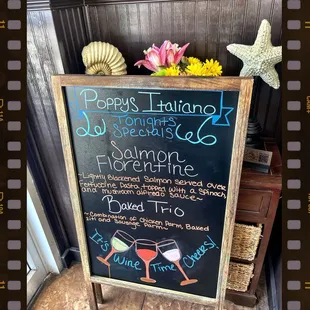 Poppys Italiano
Tonights
Specials
Salmon
Florentine
~Lightly Blackened Salmon served over
Fettuccine Pasta topped with a Spinach
and mushroom alfredo Sauce~
Baked Trio
~Combination of Chicken Parm, Baked
Ziti and Sausage Parm~
It's Wine Time Cheers!